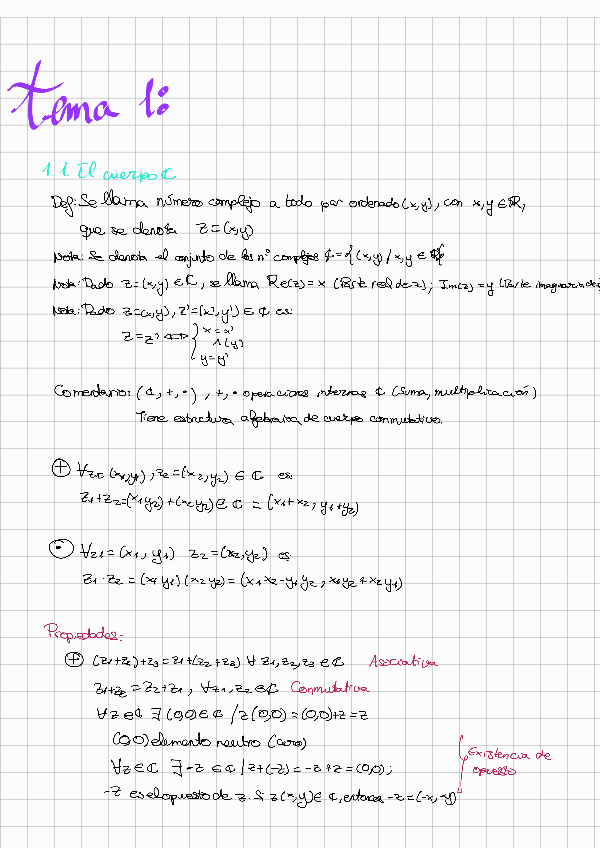 Tema 1:
1.1. El cuerpo ℂ
Def: Se llama número complejo a todo par ordenado (x,y), con x,y ∈ ℝ,
que se denota z=(x,y)
Nota: Se denota el conjunto de los nº complejos ℂ={(x,y) / x,y ∈ ℝ}
Nota: Dado z=(x,y) ∈ ℂ, se llama Re(z)=x (Parte real de z); Im(z)=y (Parte imaginaria de z)
Nota: Dado z=(x,y), z'=(x',y') ∈ ℂ es:
z=z' ⟺ { x=x'
∧ (y)
y=y'
Comentario: (ℂ,+,·), +,· operaciones internas ℂ (suma, multiplicación)
Tiene estructura algebraica de cuerpo conmutativo.
⊕ ∀z₁=(x₁,y₁), z₂=(x₂,y₂) ∈ ℂ es
z₁+z₂=(x₁y₁)+(x₂y₂) ∈ ℂ = (x₁+x₂, y₁+y₂)
⊙ ∀z₁=(x₁,y₁) z₂=(x₂,y₂) es
z₁·z₂=(x₁y₁)(x₂y₂)=(x₁x₂-y₁y₂, x₁y₂+x₂y₁)
Propiedades:
⊕ (z₁+z₂)+z₃=z₁+(z₂+z₃) ∀ z₁,z₂,z₃ ∈ ℂ Asociativa
z₁+z₂=z₂+z₁, ∀z₁,z₂ ∈ ℂ Conmutativa
∀z ∈ ℂ ∃ (0,0) ∈ ℂ / z(0,0)=(0,0)+z=z
(0,0) elemento neutro (cero)
∀z ∈ ℂ ∃ -z ∈ ℂ / z+(-z)=-z+z=(0,0);
-z es el opuesto de z. Si z(x,y) ∈ ℂ, entonces -z=(-x,-y)
Existencia de
opuesto